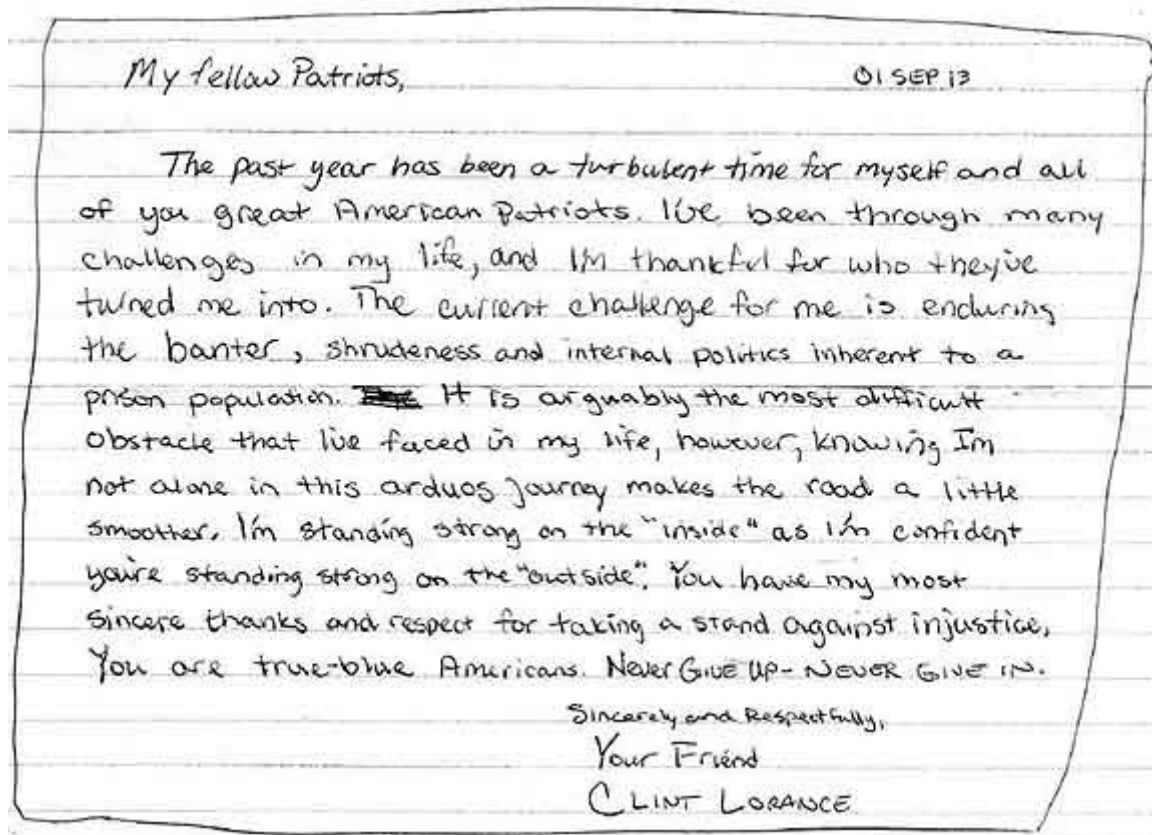 My fellow Patriots,
01 SEP 13
The past year has been a turbulent time for myself and all
of you great American Patriots. I've been through many
challenges in my life, and I'm thankful for who they've
turned me into. The current challenge for me is enduring
the banter, shrudeness and internal politics inherent to a
prison population. It is arguably the most difficult
obstacle that I've faced in my life, however, knowing I'm
not alone in this arduos journey makes the road a little
smoother. I'm standing strong on the "inside" as I'm confident
you're standing strong on the "outside". You have my most
sincere thanks and respect for taking a stand against injustice,
You are true-blue Americans. Never GIVE UP - NEVER GIVE IN.
Sincerely and Respectfully,
Your Friend
CLINT LORANCE